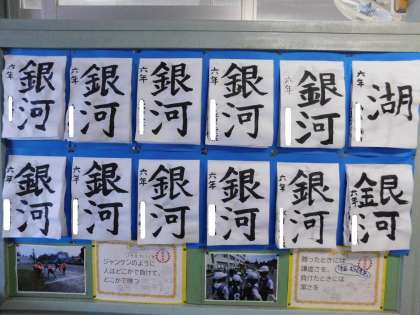 六年
銀河
六年
銀河
六年
銀河
六年
銀河
六年
銀河
六年
湖
六年
銀河
六年
銀河
六年
銀河
六年
銀河
六年
銀河
六年
銀河
ジャンケンのように
人はどこかで負けて、
どこかで勝つ
勝ったときには
謙虚さを、
負けたときには
潔さを